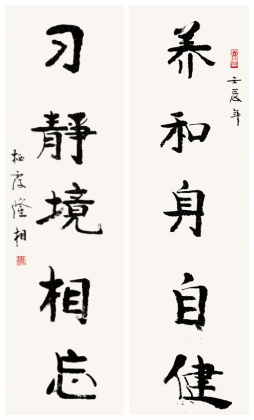 养和身自健
壬辰年
习静境相忘